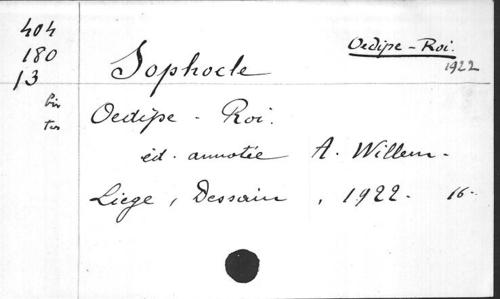 404
180
13
bis
ter
Oedipe - Roi.
1922
Sophocle
Oedipe - Roi.
éd. annotée A. Willem -
Liege, Dessain, 1922. 16-